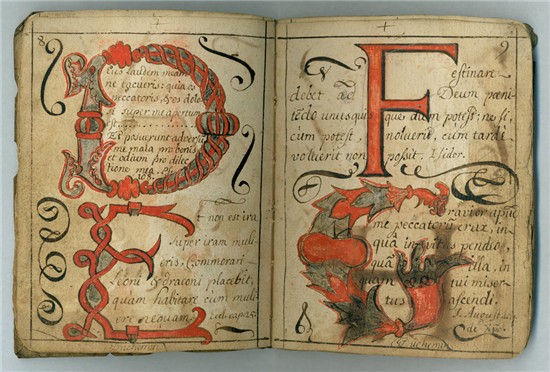 8
D
eus laudem meam
ne tacueris: quia os
peccatoris, & os dolo
si super me apertum
est
Et posuerunt adversū
me mala pro bonis
et odium pro dilec
tione mea. Ps.
108.
E
t non est ira
super iram muli
eris; Commorari
Leoni & draconi placebit,
quam habitare cum muli
ere nequam. Ecl. cap. 25.
9
F
estinare
debet ad Deum pœni
tēdo unusquis que dum potest: ne si,
cum potest, noluerit, cūm tardi
voluerit non possit. Isidor.
G
ravior apud
me peccatorū crux, in
quā invitus pendio,
quā illa, in
quam tui miser
tus ascendi.
S. August.